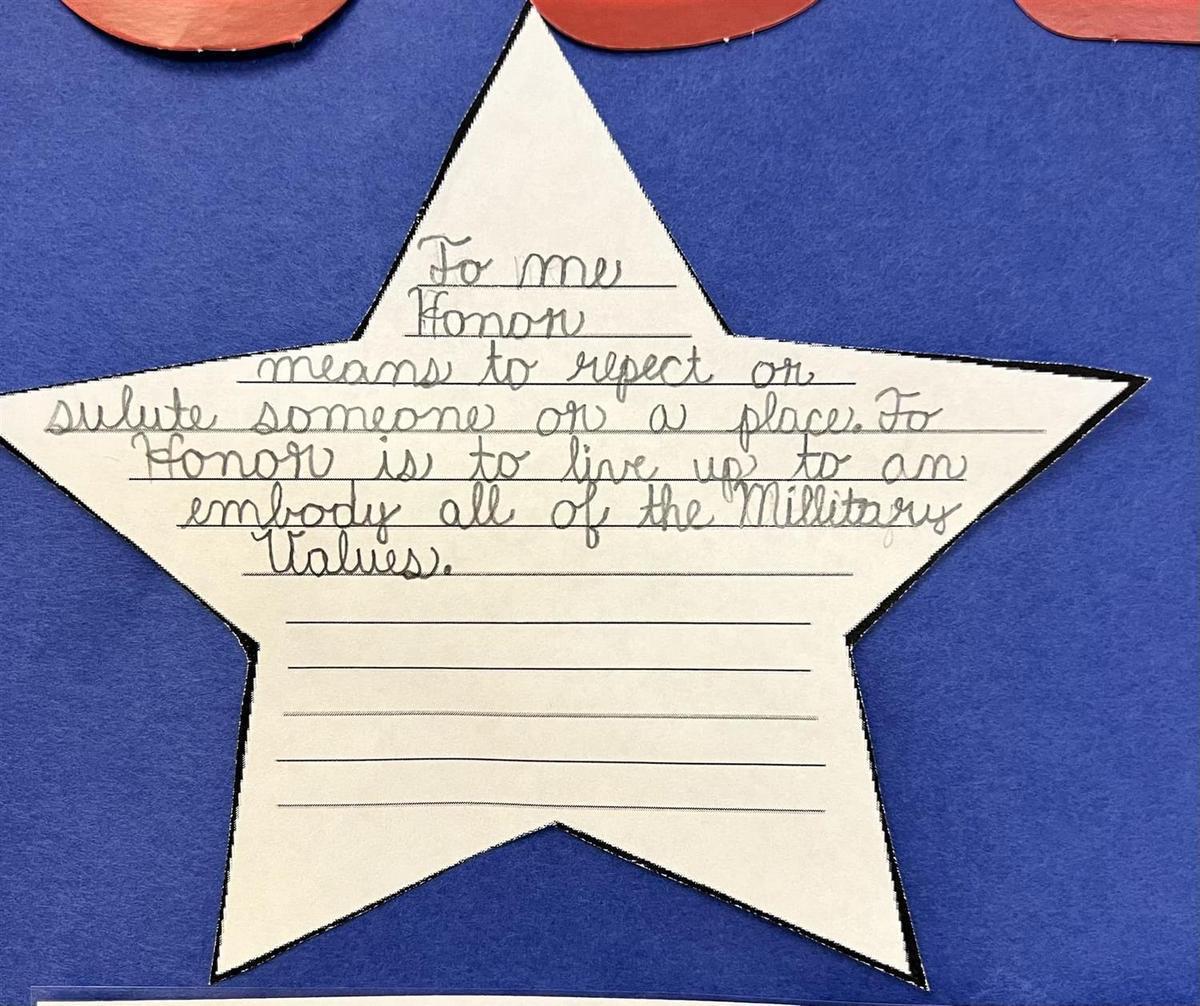 To me
Honor
means to repect or
sulute someone or a place. To
Honor is to live up to an
embody all of the Millitary
Values.